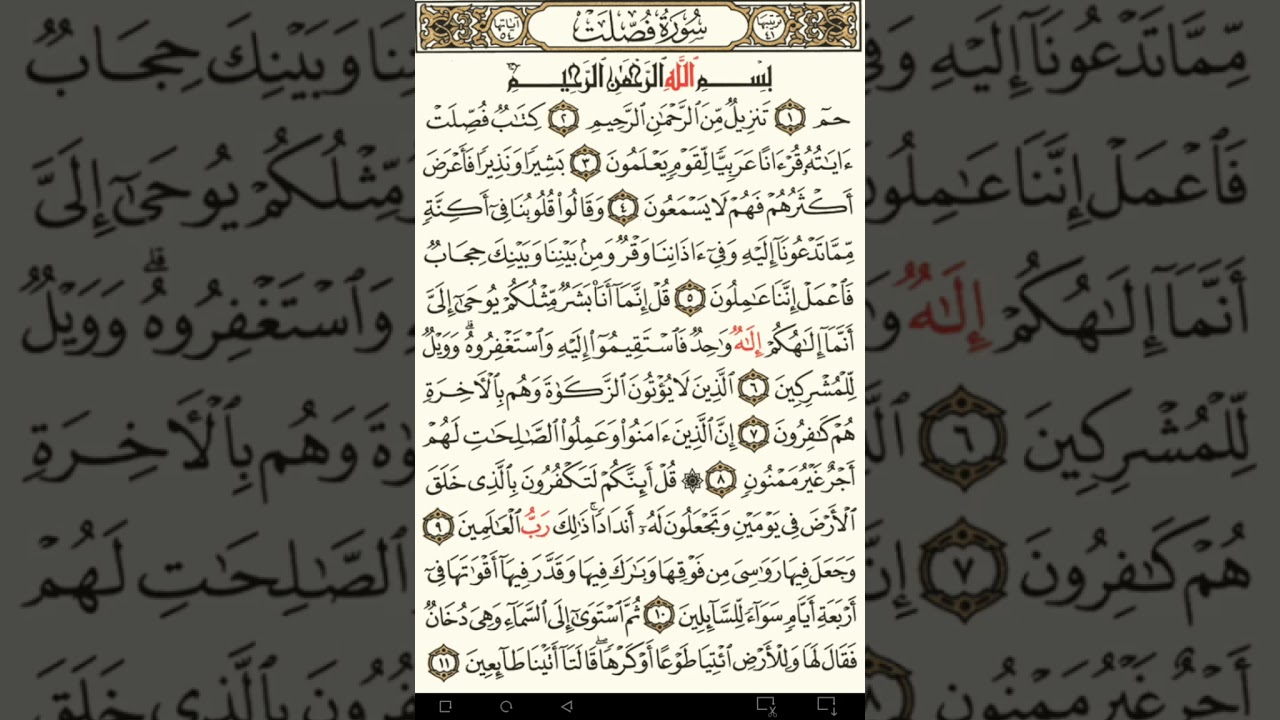 آياتها ٥٤ سُورَةُ فُصِّلَتْ ترتيبها ٤١
بِسْمِ ٱللَّهِ ٱلرَّحْمَٰنِ ٱلرَّحِيمِ
حمٓ ١ تَنزِيلٌ مِّنَ ٱلرَّحْمَٰنِ ٱلرَّحِيمِ ٢ كِتَٰبٌ فُصِّلَتْ
ءَايَٰتُهُۥ قُرْءَانًا عَرَبِيًّا لِّقَوْمٍ يَعْلَمُونَ ٣ بَشِيرًا وَنَذِيرًا فَأَعْرَضَ
أَكْثَرُهُمْ فَهُمْ لَا يَسْمَعُونَ ٤ وَقَالُوا۟ قُلُوبُنَا فِىٓ أَكِنَّةٍ
مِّمَّا تَدْعُونَآ إِلَيْهِ وَفِىٓ ءَاذَانِنَا وَقْرٌ وَمِنۢ بَيْنِنَا وَبَيْنِكَ حِجَابٌ
فَٱعْمَلْ إِنَّنَا عَٰمِلُونَ ٥ قُلْ إِنَّمَآ أَنَا۠ بَشَرٌ مِّثْلُكُمْ يُوحَىٰٓ إِلَىَّ
أَنَّمَآ إِلَٰهُكُمْ إِلَٰهٌ وَٰحِدٌ فَٱسْتَقِيمُوٓا۟ إِلَيْهِ وَٱسْتَغْفِرُوهُ ۗ وَوَيْلٌ
لِّلْمُشْرِكِينَ ٦ ٱلَّذِينَ لَا يُؤْتُونَ ٱلزَّكَوٰةَ وَهُم بِٱلْـَٔاخِرَةِ
هُمْ كَٰفِرُونَ ٧ إِنَّ ٱلَّذِينَ ءَامَنُوا۟ وَعَمِلُوا۟ ٱلصَّٰلِحَٰتِ لَهُمْ
أَجْرٌ غَيْرُ مَمْنُونٍ ٨ ۞ قُلْ أَئِنَّكُمْ لَتَكْفُرُونَ بِٱلَّذِى خَلَقَ
ٱلْأَرْضَ فِى يَوْمَيْنِ وَتَجْعَلُونَ لَهُۥٓ أَندَادًا ۚ ذَٰلِكَ رَبُّ ٱلْعَٰلَمِينَ ٩
وَجَعَلَ فِيهَا رَوَٰسِىَ مِن فَوْقِهَا وَبَٰرَكَ فِيهَا وَقَدَّرَ فِيهَآ أَقْوَٰتَهَا فِىٓ
أَرْبَعَةِ أَيَّامٍ سَوَآءً لِّلسَّآئِلِينَ ١٠ ثُمَّ ٱسْتَوَىٰٓ إِلَى ٱلسَّمَآءِ وَهِىَ دُخَانٌ
فَقَالَ لَهَا وَلِلْأَرْضِ ٱئْتِيَا طَوْعًا أَوْ كَرْهًا ۖ قَالَتَآ أَتَيْنَا طَآئِعِينَ ١١